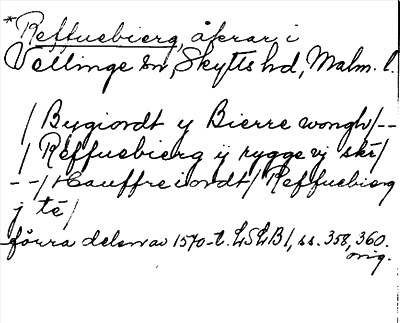 *Reffuebierg, åkrar i
Vellinge sn, Skytts hd, Malm. l.
/ Bygiordt y Bierre wongh/--
/ Reffuebierg ij rygge vj skr/
--/ Hauffreiordt/ Reffuebierg
j te/
förra delen av 1570-t. LSLB1, ss. 358, 360.
orig.